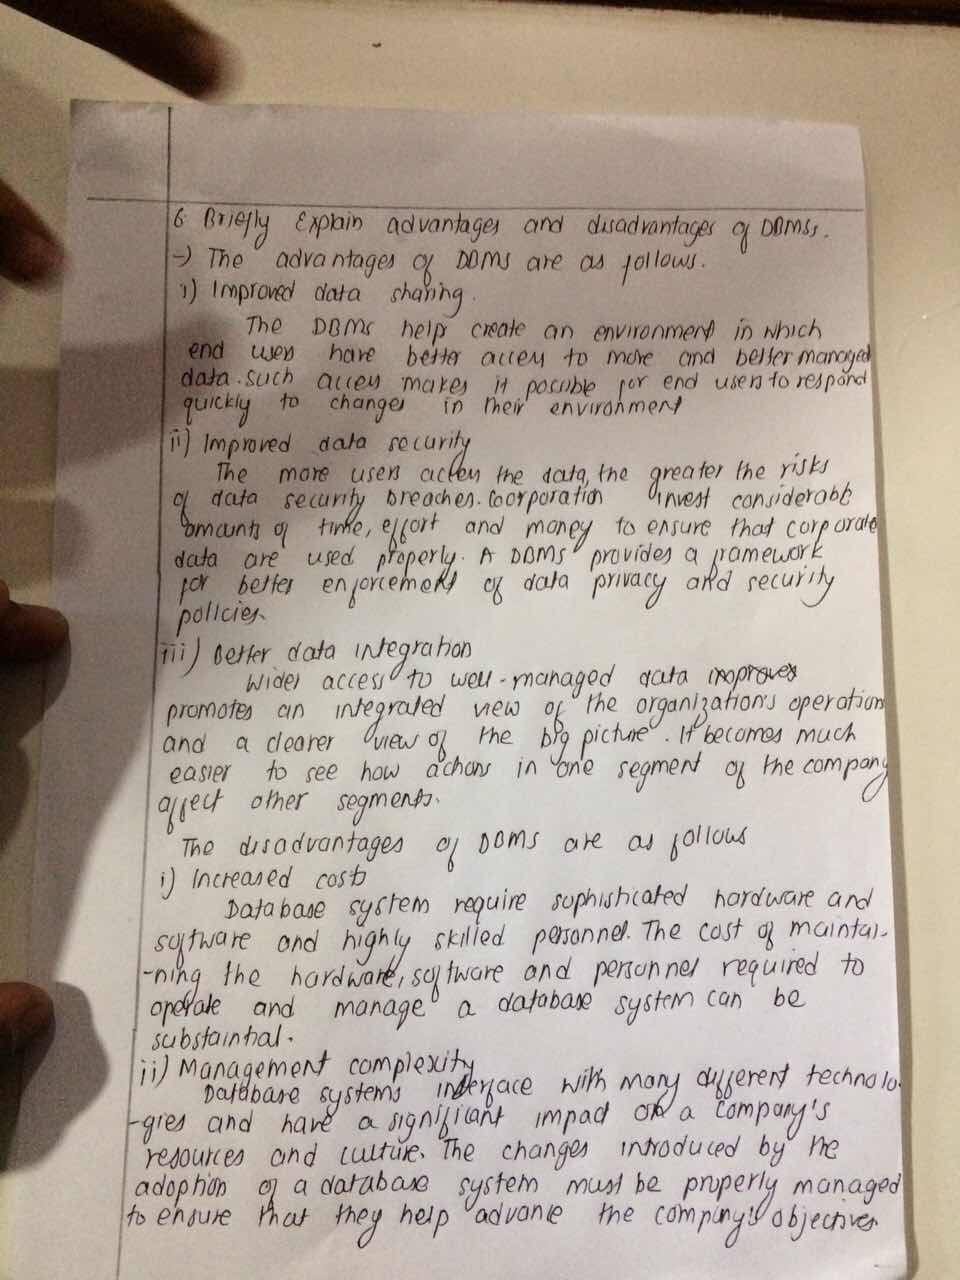 6. Briefly Explain advantages and disadvantages of DBMSs.
→ The advantages of DBMS are as follows.
i) Improved data sharing.
The DBMS help create an environment in which
end users have better access to more and better managed
data. Such access makes it possible for end users to respond
quickly to changes in their environment
ii) Improved data security
The more users access the data, the greater the risks
of data security breaches. Coorporation invest considerable
amounts of time, effort and money to ensure that corporate
data are used properly. A DBMS provides a framework
for better enforcement of data privacy and security
policies.
iii) Better data integration
Wider access to well-managed data improves
promotes an integrated view of the organization's operation
and a clearer view of the big picture. It becomes much
easier to see how actions in one segment of the company
affect other segments.
The disadvantages of DBMS are as follows
i) Increased costs
Database system require sophisticated hardware and
software and highly skilled personnel. The cost of maintai-
-ning the hardware, software and personnel required to
operate and manage a database system can be
substaintial.
ii) Management complexity
Database systems interface with many different technolo-
-gies and have a significant impact on a company's
resources and culture. The changes introduced by the
adoption of a database system must be properly managed
to ensure that they help advance the company's objectives